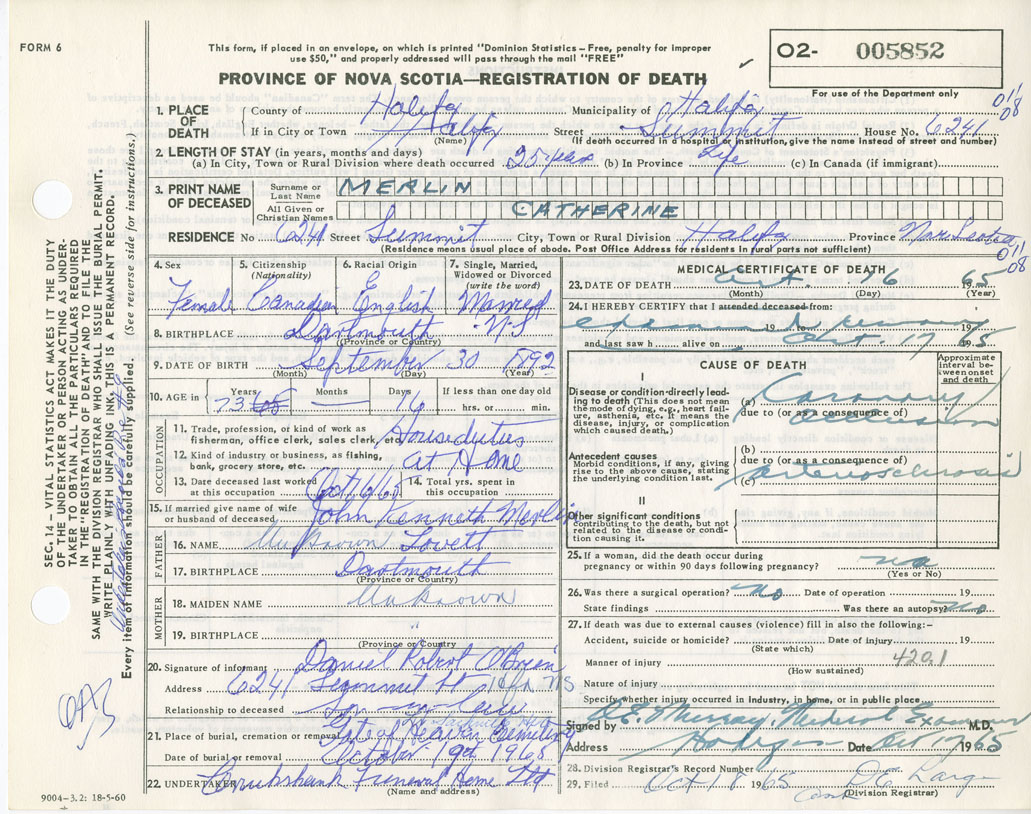 FORM 6
This form, if placed in an envelope, on which is printed "Dominion Statistics – Free, penalty for improper
use $50," and properly addressed will pass through the mail "FREE"
PROVINCE OF NOVA SCOTIA—REGISTRATION OF DEATH
O2- 005852
For use of the Department only
011
08
1. PLACE OF DEATH County of Halifax Municipality of Halifax
If in City or Town Halifax Street Summit House No. 6241
(Name) (If death occurred in a hospital or institution, give the name instead of street and number)
2. LENGTH OF STAY (in years, months and days)
(a) In City, Town or Rural Division where death occurred 25 years (b) In Province Life (c) In Canada (if immigrant)
3. PRINT NAME OF DECEASED Surname or Last Name MERLIN
All Given or Christian Names CATHERINE
RESIDENCE No 6241 Street Summit City, Town or Rural Division Halifax Province Nova Scotia
(Residence means usual place of abode. Post Office Address for residents in rural parts not sufficient)
011
08
4. Sex 5. Citizenship (Nationality) 6. Racial Origin 7. Single, Married, Widowed or Divorced (write the word)
Female Canadian English Married
8. BIRTHPLACE Dartmouth N.S
(Province or Country)
9. DATE OF BIRTH September 30 1892
(Month) (Day) (Year)
10. AGE in Years Months Days If less than one day old
73 — 16 hrs. or min.
OCCUPATION
11. Trade, profession, or kind of work as fisherman, office clerk, sales clerk, etc. Houseduties
12. Kind of industry or business, as fishing, bank, grocery store, etc. At Home
13. Date deceased last worked at this occupation Oct 16/65 14. Total yrs. spent in this occupation
15. If married give name of wife or husband of deceased John Kenneth Merlin
FATHER
16. NAME Unknown Lovett
17. BIRTHPLACE Dartmouth
(Province or Country)
MOTHER
18. MAIDEN NAME Unknown
19. BIRTHPLACE "
(Province or Country)
20. Signature of informant Daniel Robert O'Brien
Address 6241 Summit St Hfx NS
Relationship to deceased Son-in-law
21. Place of burial, cremation or removal Gate of Heaven Cemetery
Date of burial or removal October 19th 1965
22. UNDERTAKER Cruikshank Funeral Home Ltd
(Name and address)
9004-3.2: 18-5-60
MEDICAL CERTIFICATE OF DEATH
23. DATE OF DEATH Oct. 16 65
(Month) (Day) (Year)
24. I HEREBY CERTIFY that I attended deceased from:
19 to 19
and last saw h alive on Oct. 17 1965
CAUSE OF DEATH
Approximate interval between onset and death
I
Disease or condition directly leading to death (This does not mean the mode of dying, e.g., heart failure, asthenia, etc. It means the disease, injury, or complication which caused death).
(a) Coronary
due to (or as a consequence of)
occlusion
Antecedent causes
Morbid conditions, if any, giving rise to the above cause, stating the underlying condition last.
(b)
due to (or as a consequence of)
(c) arteriosclerosis
II
Other significant conditions
contributing to the death, but not related to the disease or condition causing it.
25. If a woman, did the death occur during pregnancy or within 90 days following pregnancy? no
(Yes or No)
26. Was there a surgical operation? no Date of operation 19
State findings Was there an autopsy? no
27. If death was due to external causes (violence) fill in also the following:–
Accident, suicide or homicide? Date of injury 19
(State which)
Manner of injury 4201
(How sustained)
Nature of injury
Specify whether injury occurred in industry, in home, or in public place
Signed by Murray, Medical Examiner M.D.
Address Date Oct 17 1965
28. Division Registrar's Record Number
29. Filed Oct 18 1965
(Division Registrar)
SEC. 14 – VITAL STATISTICS ACT MAKES IT THE DUTY
OF THE UNDERTAKER OR PERSON ACTING AS UNDER-
TAKER TO OBTAIN ALL THE PARTICULARS REQUIRED
IN THE "REGISTRATION OF DEATH" AND TO FILE THE
SAME WITH THE DIVISION REGISTRAR WHO SHALL ISSUE THE BURIAL PERMIT.
WRITE PLAINLY WITH UNFADING INK, THIS IS A PERMANENT RECORD.
Every item of information should be carefully supplied. (See reverse side for instructions.)